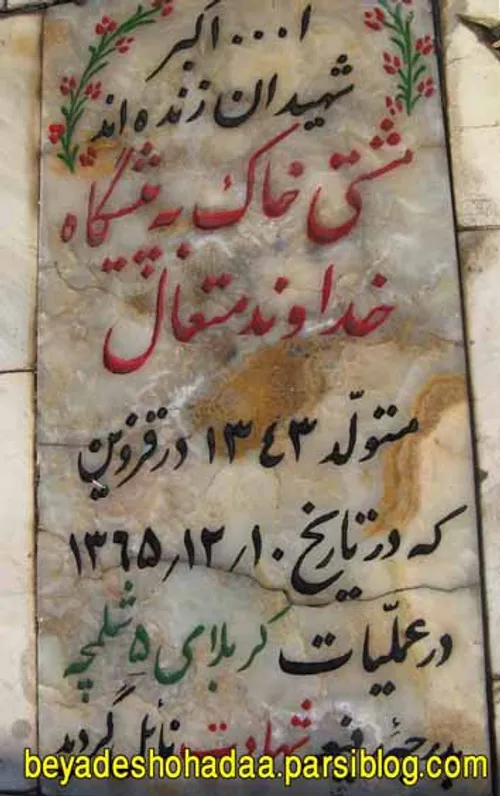 ا.... اکبر
شهیدان زنده اند
مشتی خاک به پیشگاه
خداوند متعال
متولّد ۱۳٤۳ در قزوین
که در تاریخ ۱۰٫ ۱۲٫ ۱۳٦۵
در عملّیات کربلای ۵ شلمچه
بدرجۀ رفیع شهادت نائل گردید
beyadeshohadaa.parsiblog.com